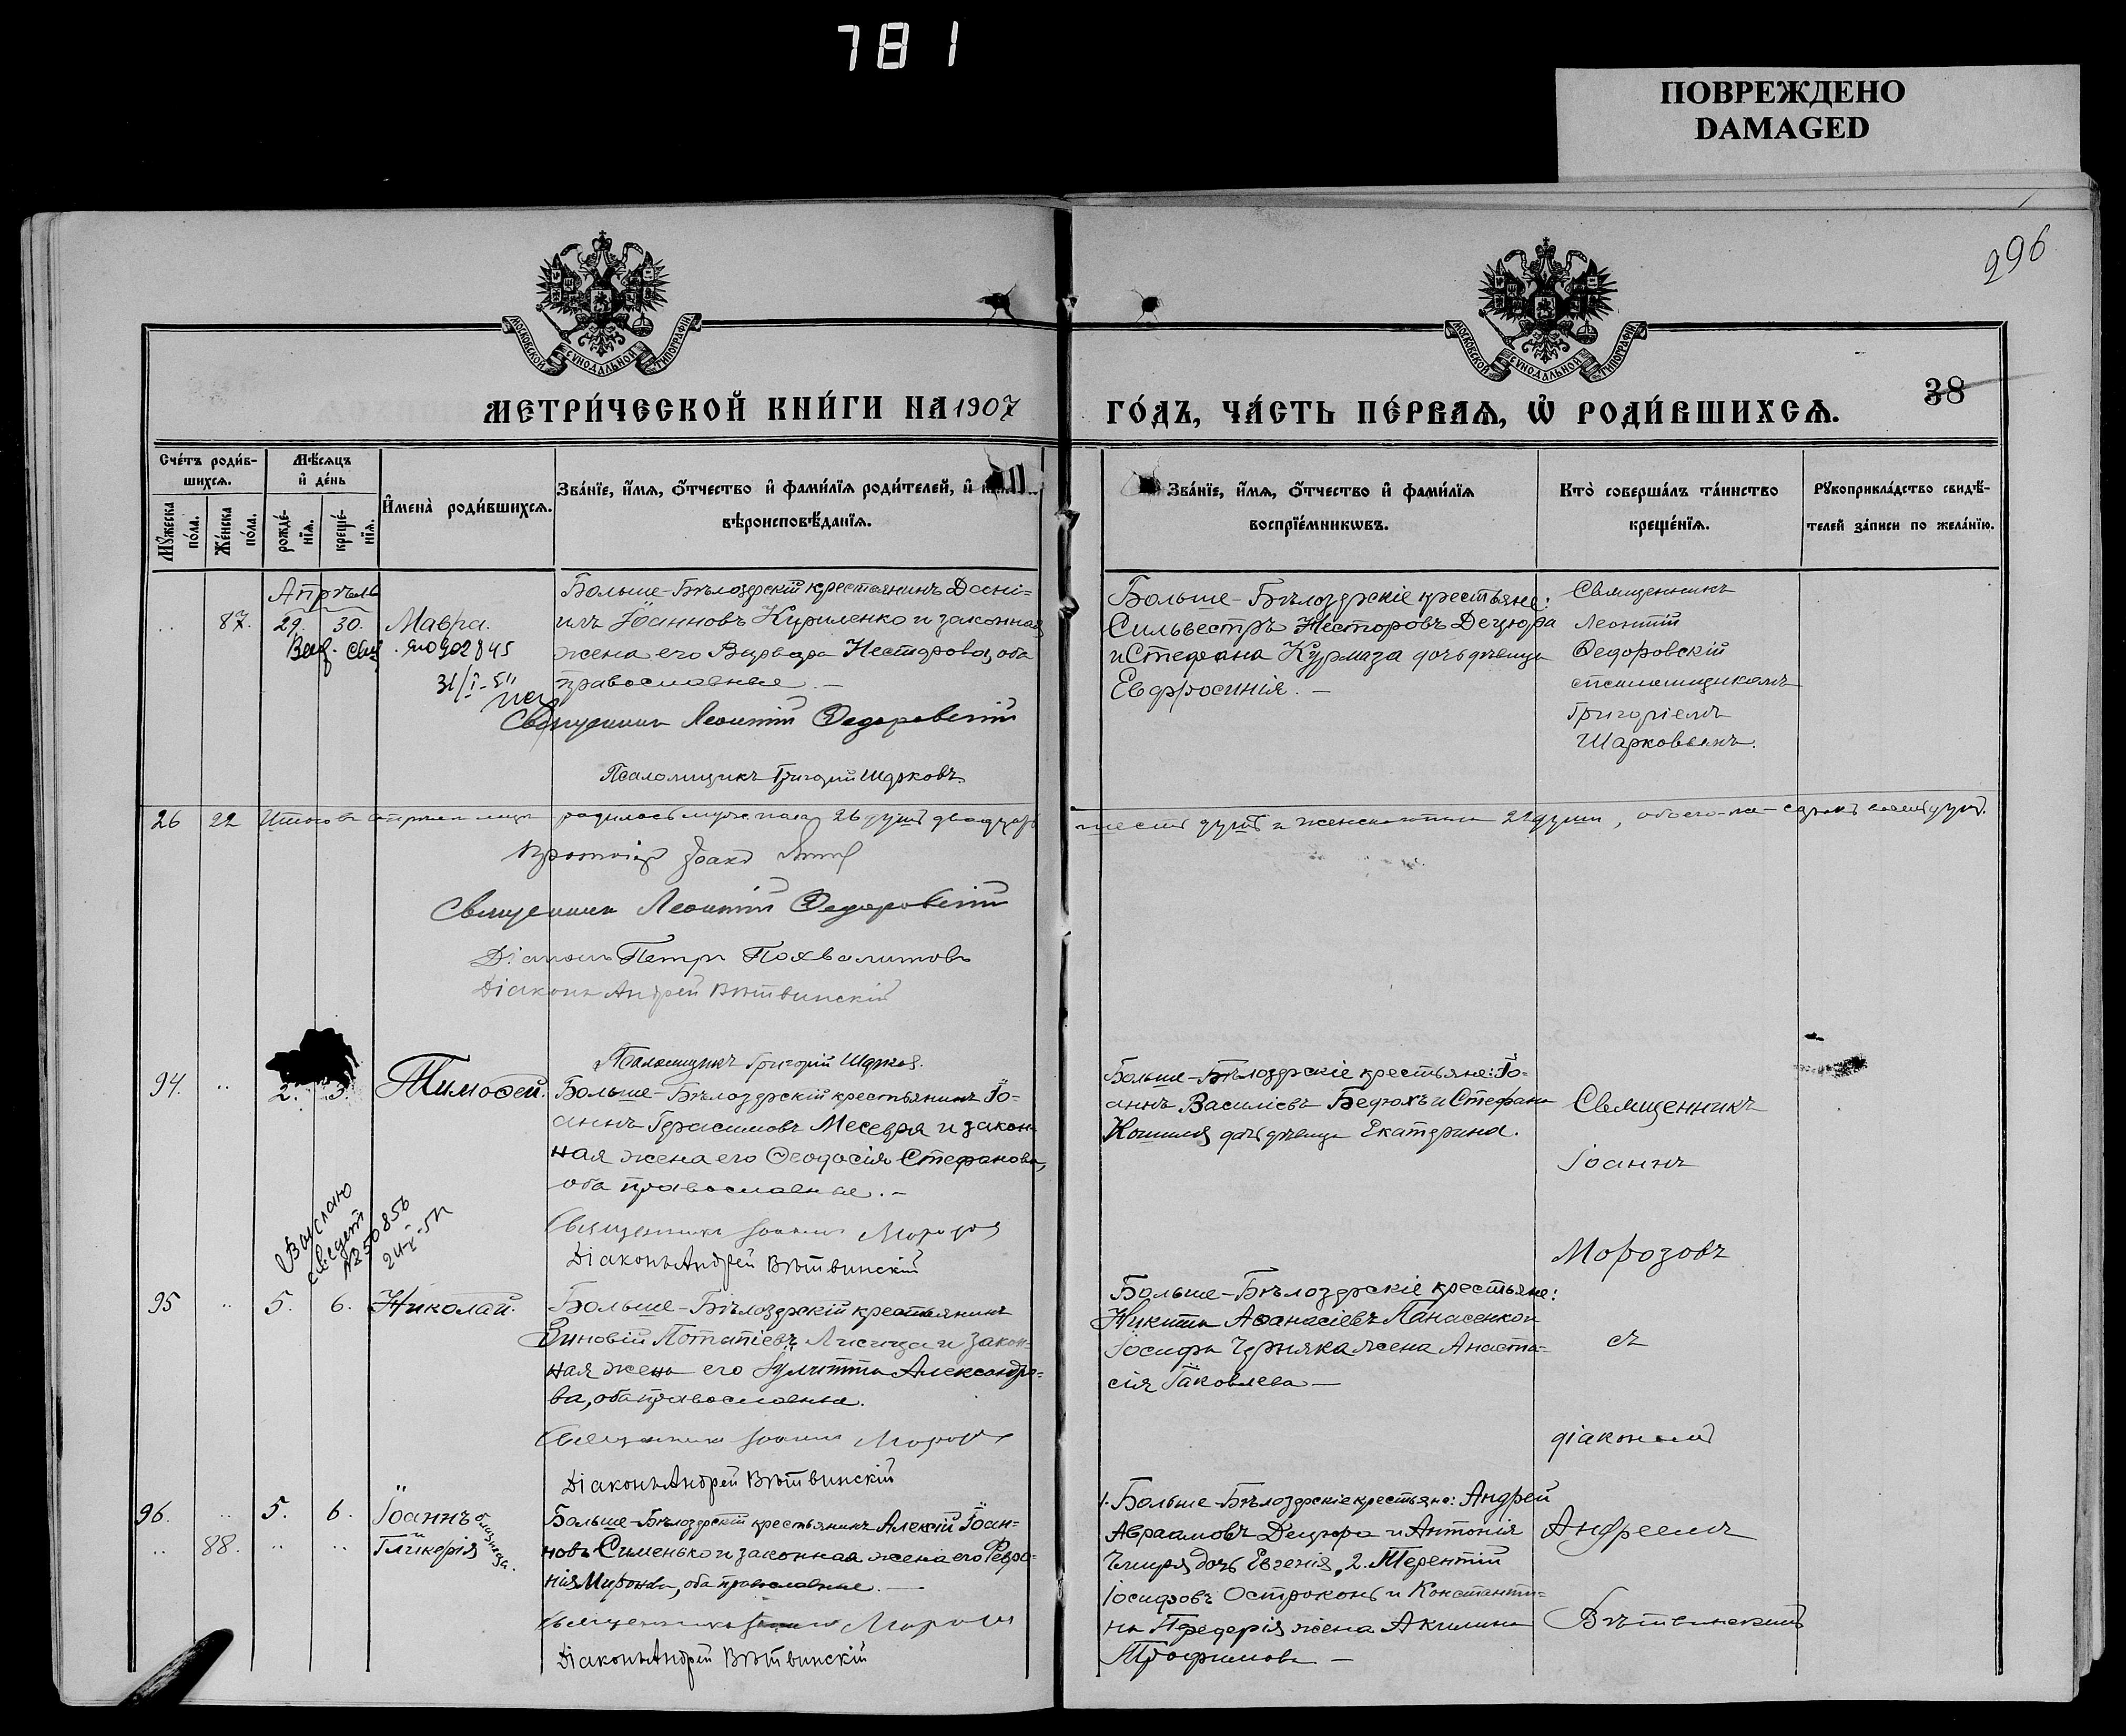 781
ПОВРЕЖДЕНО
DAMAGED
296
МОСКОВСКОЙ СѴНОДАЛЬНОЙ ТИПОГРАФІИ
МОСКОВСКОЙ СѴНОДАЛЬНОЙ ТИПОГРАФІИ
38
МЕТРИ́ЧЕСКОЙ КНИ́ГИ НА 1907
ГО́ДЪ, ЧА́СТЬ ПЕ́РВАѦ, Ѡ҆ РОДИ́ВШИХСѦ.
Сче́тъ роди́в-
шихсѧ.
Мѣ́сѧцъ
и҆ де́нь
Мꙋ́жеска
по́ла.
Же́нска
по́ла.
рожде́-
нїѧ.
креще́-
нїѧ.
И҆мена̀ роди́вшихсѧ.
Зва́нїе, и҆́мѧ, ѻ҆́тчество и҆ фами́лїѧ роди́телей, и҆
вѣроисповѣ́данїѧ.
Зва́нїе, и҆́мѧ, ѻ҆́тчество и҆ фами́лїѧ
воспрїе́мникѡвъ.
Кто̀ соверша́лъ та́инство
креще́нїѧ.
Рꙋкоприкла́дство свидѣ́-
телей за́писи по жела́нїю.
Апрѣль
87. 29. 30. Мавра.
Больше-Бѣлозерскій крестьянинъ Дані-
илъ Іоанновъ Куриленко и законная
жена его Варвара Несторова, оба
православные. —
31/I-51
Священникъ Леонтій Ѳедоровскій
Псаломщикъ Григорій Шарковъ
Больше-Бѣлозерскіе крестьяне:
Сильвестръ Несторовъ Децюра
и Стефана Курмаза дочь дѣвица
Евфросинія. —
Священникъ
Леонтій
Ѳедоровскій
съ псаломщикомъ
Григоріемъ
Шарковымъ.
26 22 родилось муж. пола 26 душъ двадцать
шесть душъ и женскаго 22 души,
Священникъ Леонтій Ѳедоровскій
Діаконъ Петръ Похвалитовъ
Діаконъ Андрей Вѣтвинскій
Псаломщикъ Григорій Шарковъ.
94. .. 2. 3. Тимоѳей.
Больше-Бѣлозерскій крестьянинъ Іо-
аннъ Герасимовъ Месевря и закон-
ная жена его Ѳеодосія Стефанова,
оба православные. —
Священникъ Іоаннъ Морозовъ
Діаконъ Андрей Вѣтвинскій
Больше-Бѣлозерскіе крестьяне: Іо-
аннъ Василіевъ Бедюхъ и Стефана
дочь дѣвица Екатерина.
Священникъ
Іоаннъ
Морозовъ
95 .. 5. 6. Николай.
Больше-Бѣлозерскій крестьянинъ
Зиновій Потапіевъ Лисица и закон-
ная жена его Іулитта Александро-
ва, оба православные.
Священникъ Іоаннъ Морозовъ
Діаконъ Андрей Вѣтвинскій
Больше-Бѣлозерскіе крестьяне:
Никита Аѳанасіевъ Панасенко и
Іосифа Черняка жена Анаста-
сія Іаковлева —
съ
діакономъ
96. .. 5. 6. Іоаннъ
.. 88. .. .. Гликерія
близнецы.
Больше-Бѣлозерскій крестьянинъ Алексій Іоан-
новъ Сименько и законная жена его Февро-
нія Миронова, оба православные. —
Священникъ Іоаннъ Морозовъ
Діаконъ Андрей Вѣтвинскій
1. Больше-Бѣлозерскіе крестьяне: Андрей
Авраамовъ Децюра и Антонія
дочь Евгенія, 2. Терентій
Іосифовъ Остроконь и Константи-
на Передерія жена Акилина
Трофимова —
Андреемъ
Вѣтвинскимъ